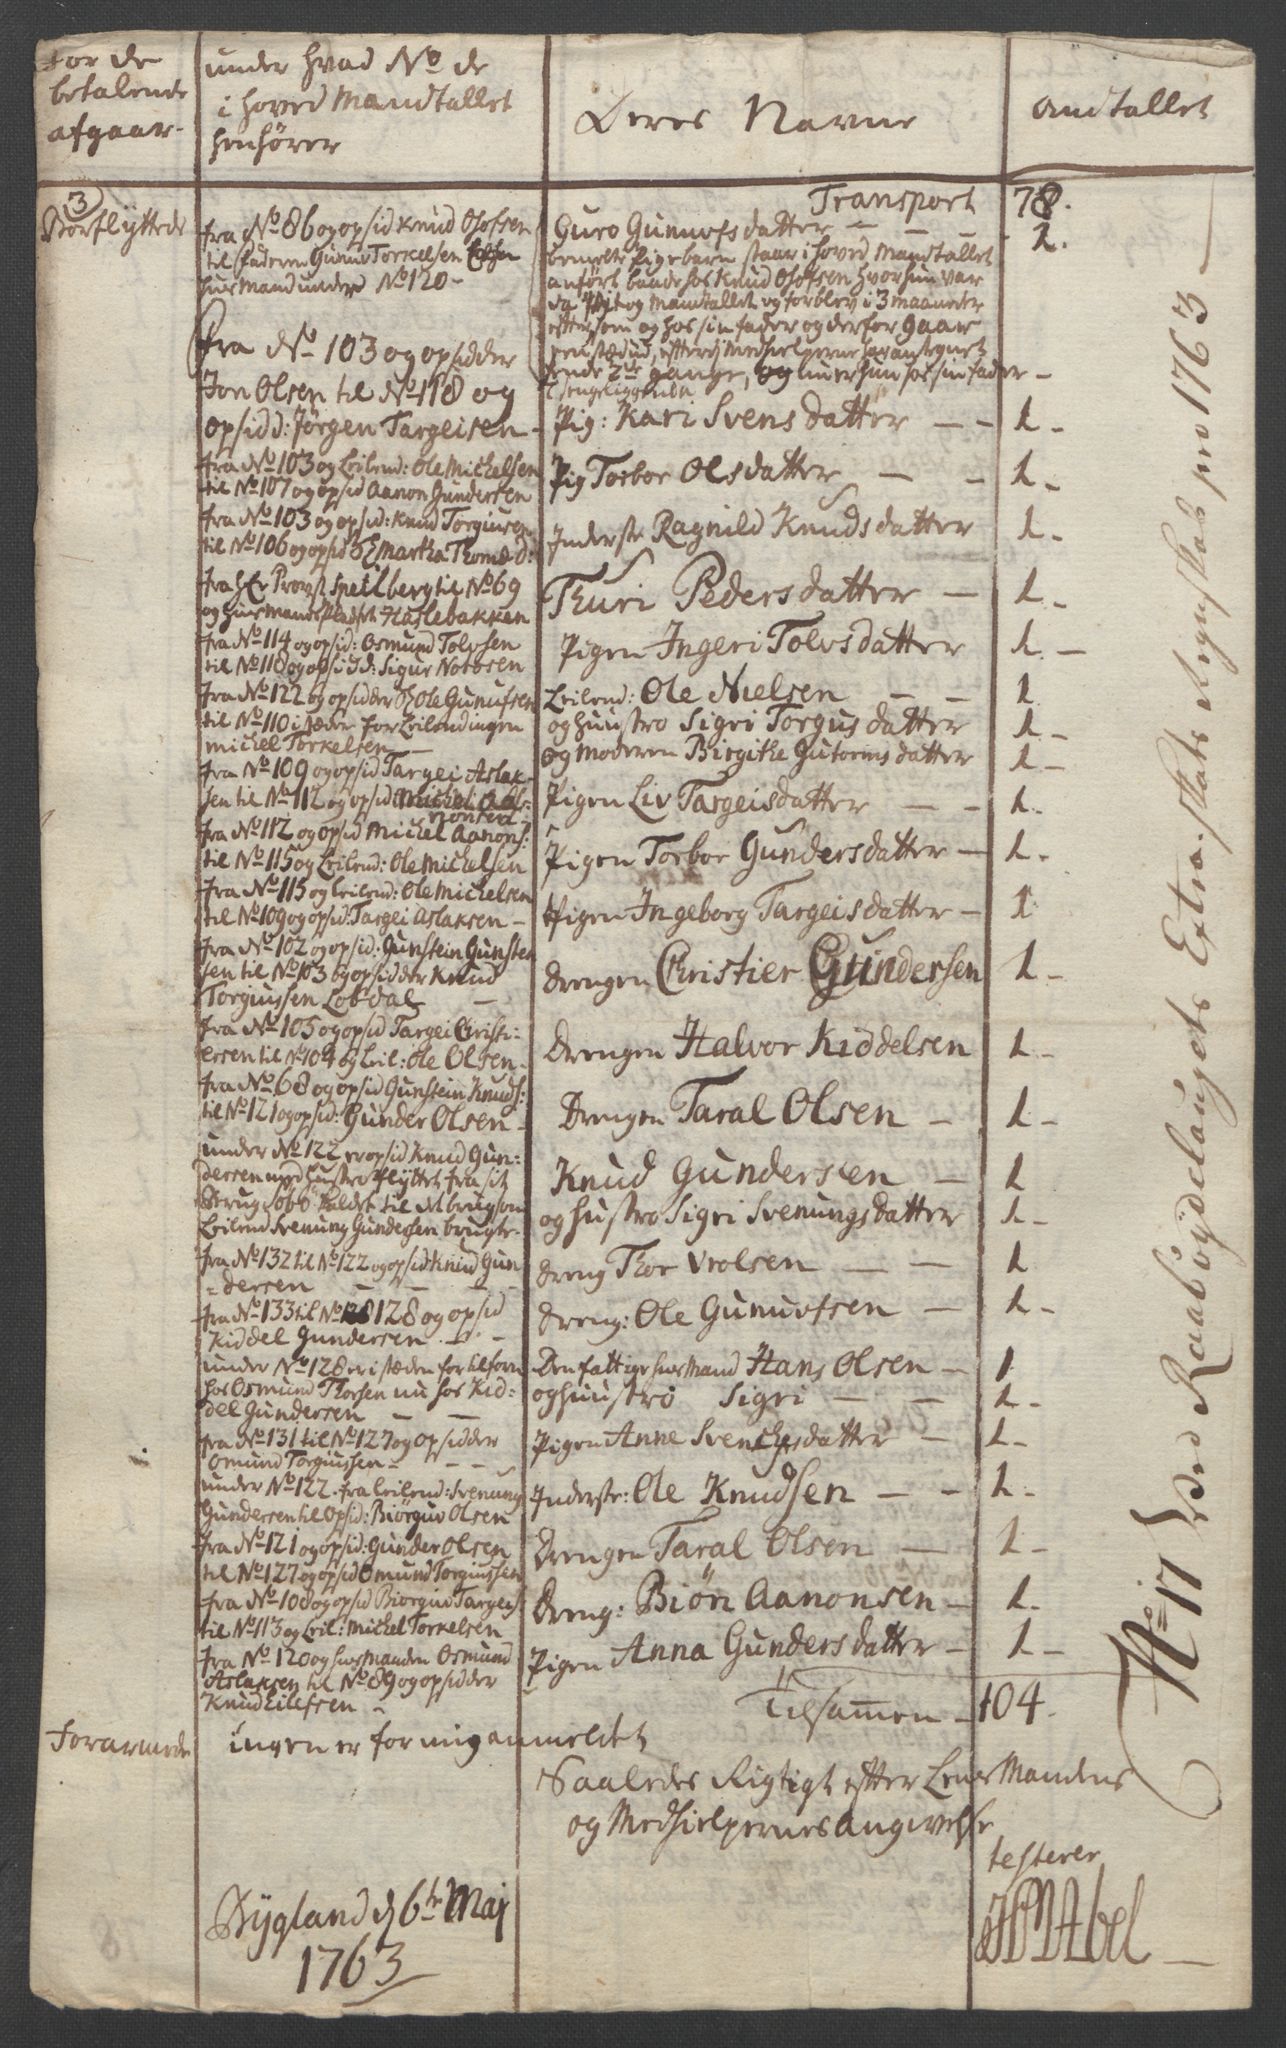 for de
betalende
afgaar-
under hvad No de
i hoved Mandtallet
henhører
Deres Navne
Andtallet
3
Bortflyttede
Transport 78.
fra No 86 og opsid Knud Olofsen
til faderen Gunuv Torkelsen
huusmand under No 120-
Guro Gunuofsdatter - - - 1.
bemelte Pigebarn staar i hoved Mandtallet
anført baade hos Knud Olofsen hvor hun var
og Mandtallet og forblev i 3 maaneder
som og hos sin fader og derfor gaar
Medhielperne har antegnet
hende 2de gange, og nu er hun hos sin fader -
sengeliggende
fra No 103 og opsidder
Jon Olsen til No 118 og
opsidd: Jørgen Targeisen-
Pig: Kari Svensdatter - - 1-
fra No 103 og Leilend: Ole Michelsen
til No 107 og opsid Aanon Gundersen
Pig Torbor Olsdatter - - 1-
fra No 103 og opsid: Knud Torgiusen
til No 106 og opsid Martha Thomæd:
Inderste Ragnild Knudsdatter 1-
fra Hr Provst Speilberg til No 69
og Huusmandspladset Haslebakken
Thuri Pedersdatter - 1-
fra No 114 og opsid: Osmund Tolvsen
til No 118 og opsidd: Sigur Notosen
Pigen Ingeri Tolvsdatter 1-
fra No 122 og opsidder Ole Gunufsen
til No 110 i stæden for Leilendingen
Michel Torkelsen -
Leilend: Ole Nielsen - - 1
og huustro Sigri Torgusdatter 1-
og moderen Birgithe Gutormsdatter 1-
fra No 109 og opsid Targei Aslak-
sen til No 112 og opsid Michel Aa-
nonsen
Pigen Liv Targeisdatter - - 1.
fra No 112 og opsid Michel Aanons:
til No 115 og Leilend: Ole Michelsen
Pigen Torbor Gundersdatter - 1-
fra No 115 og Leilend: Ole Michelsen
til No 109 og opsid: Targei Aslaksen -
Pigen Ingeborg Targeisdatter - 1
fra No 102 og opsid: Gunstein Gunstein
sen til No 103 og opsidder Knud
Torgiussen Lobdal -
drengen Christier Gundersen 1-
fra No 105 og opsid Targei Christi-
ersen til No 104 og Leil: Ole Olsen-
Drengen Halvor Kiddelsen 1-
fra No 68 og opsid Gunstein Knuds:
til No 121 og opsid: Gunder Olsen-
Drengen Taral Olsen - 1-
under No 122 er opsid Knud Gun:
dersen med hustro flyttet fra sit
brug kaldet til et brug som
Leilend Svenung Gundersen brugte-
Knud Gundersen - 1
og hustro Sigri Svenungsdatter 1-
fra No 132 til No 122 og opsid: Knud Gun
-dersen - - -
dreng Thor Vrolsen - - 1
fra No 133 til No 128 og opsid
Kiddel Gundersen -. -
dreng: Ole Gunuofsen - 1-
under No 128 er i stæden for tilforn
hos Osmund Thorsen nu hos Kid:
del Gundersen - -
Den fattige husmand Hans Olsen - 1
og huustro Sigri - - 1-
fra No 131 til No 127 og opsidder
Osmund Torgiussen - - -
Pigen Anne Svenchesdatter - 1-
under No 122. fra Leilend: Svenung
Gundersen til Opsid: Biörguv Olsen
Inderste: Ole Knudsen - - 1-
fra No 121 og opsid: Gunder Olsen
til No 127 og opsid Omund Torgiussen
Drengen Taral Olsen - 1-
fra No 108 og opsid Biorguv Targeis:
til No 113 og Leil: Michel Torkelsen
Dreng: Biön Aanonsen - 1-
fra No 120 og huusmanden Osmund
Aslaksen til No 89 og opsidder
Knud Eilefsen -
Pigen Anna Gundersdatter - 1-
Tilsamen - 104.
Forarmede ingen er for mig anmeldet
Saaledes Rigtigt efter Lens Mandens
og Medhielpernes angivelse
testerer
Dygland d 6te Maj
1763
HPMAbel
No 17 Ved Raabøydelaugets Extra-skatts Regnskab pro 1763